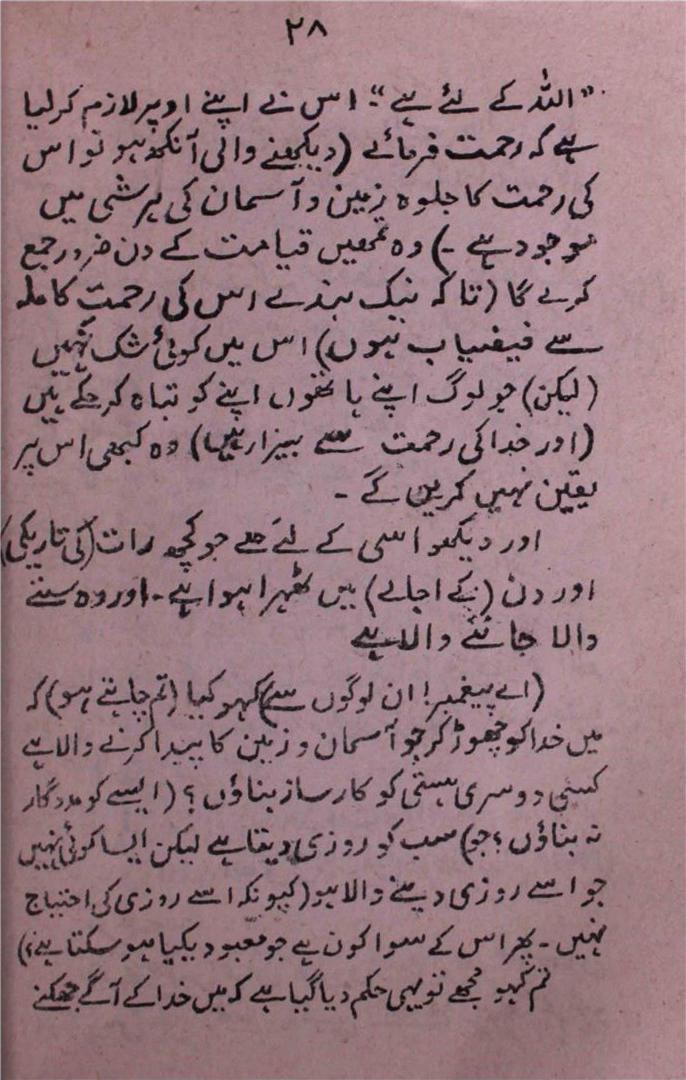 ۲۸
"اللہ کے لئے ہے"۔ اس نے اپنے اوپر لازم کرلیا
ہے کہ رحمت فرمائے (دیکھنے والی آنکھ ہو تو اس
کی رحمت کا جلوہ زمین و آسمان کی ہر شی میں
موجود ہے ۔) وہ تمھیں قیامت کے دن ضرور جمع
کرے گا (تاکہ نیک بندے اس کی رحمت کاملہ
سے فیضیاب ہوں) اس میں کوئی شک نہیں
(لیکن) جو لوگ اپنے ہاتھوں اپنے کو تباہ کرچکے ہیں
(اور خدا کی رحمت سے بیزار ہیں) وہ کبھی اس پر
یقین نہیں کریں گے ۔
اور دیکھو اسی کے لئے ہے جو کچھ رات (کی تاریکی)
اور دن (کے اجالے) میں ٹھہرا ہوا ہے ۔ اور وہ سننے
والا جاننے والا ہے
(اے پیغمبر! ان لوگوں سے) کہو کیا (تم چاہتے ہو) کہ
میں خدا کو چھوڑ کر جو آسمان و زمین کا پیدا کرنے والا ہے
کسی دوسری ہستی کو کارساز بناؤں ؟ (ایسے کو مددگار
نہ بناؤں ؟ جو) سب کو روزی دیتا ہے لیکن ایسا کوئی نہیں
جو اسے روزی دینے والا ہو (کیونکہ اسے روزی کی احتیاج
نہیں ۔ پھر اس کے سوا کون ہے جو معبود یکتا ہوسکتا ہے؟)
تم کہو مجھے تو یہی حکم دیا گیا ہے کہ میں خدا کے آگے جھکنے